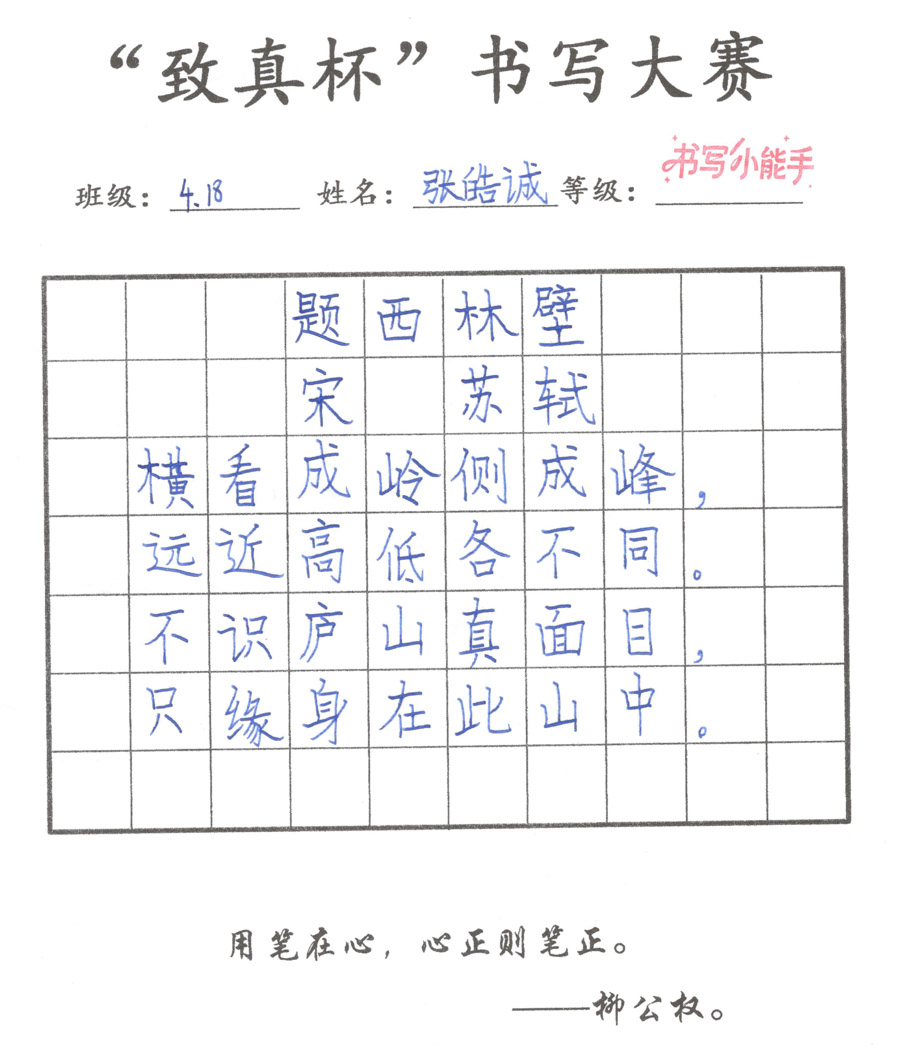 “致真杯”书写大赛
书写小能手
班级：4.18 姓名：张皓诚 等级：
题西林壁
宋 苏轼
横看成岭侧成峰，
远近高低各不同。
不识庐山真面目，
只缘身在此山中。
用笔在心，心正则笔正。
——柳公权。